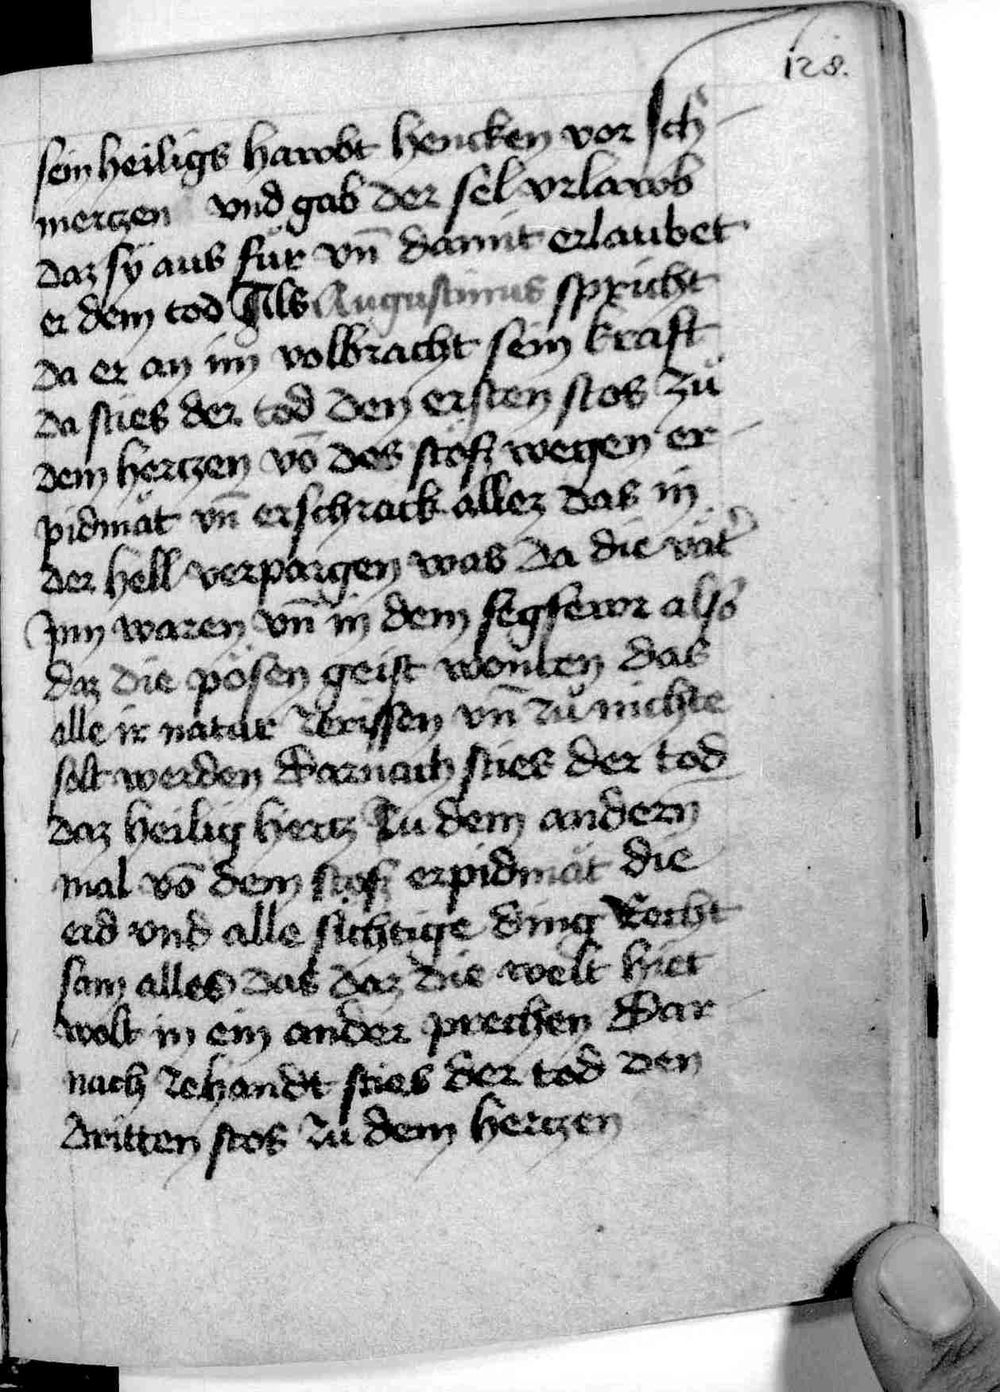 128.
sein heiligs hawbt hencken vor sch
mertzen vnd gab der sel vrlawb
daz sÿ aus für vn̄ damit erlaubet
er dem tod Als Augustinus spricht
da er an im volbracht sein kraft
da sties der tod den ersten stos zů
dem hertzen vō des stoß wegen er
pidmät vn̄ erschrack allez das in
der hell verpargen was da die vät̓
Inn waren vn̄ in dem fegfewr also
daz die pösen geist wonten das
alle ir natur zerissen vn̄ zů nichte
solt werden Darnach sties der tod
daz heilig hertz zu dem andern
mal vō dem stoß erpidmät die
erd vnd alle sichtige ding Recht
sam alles das daz die welt hiet
wolt in ein ander prechen Dar
nach zehandt sties der tod den
dritten stos zu dem hertzen